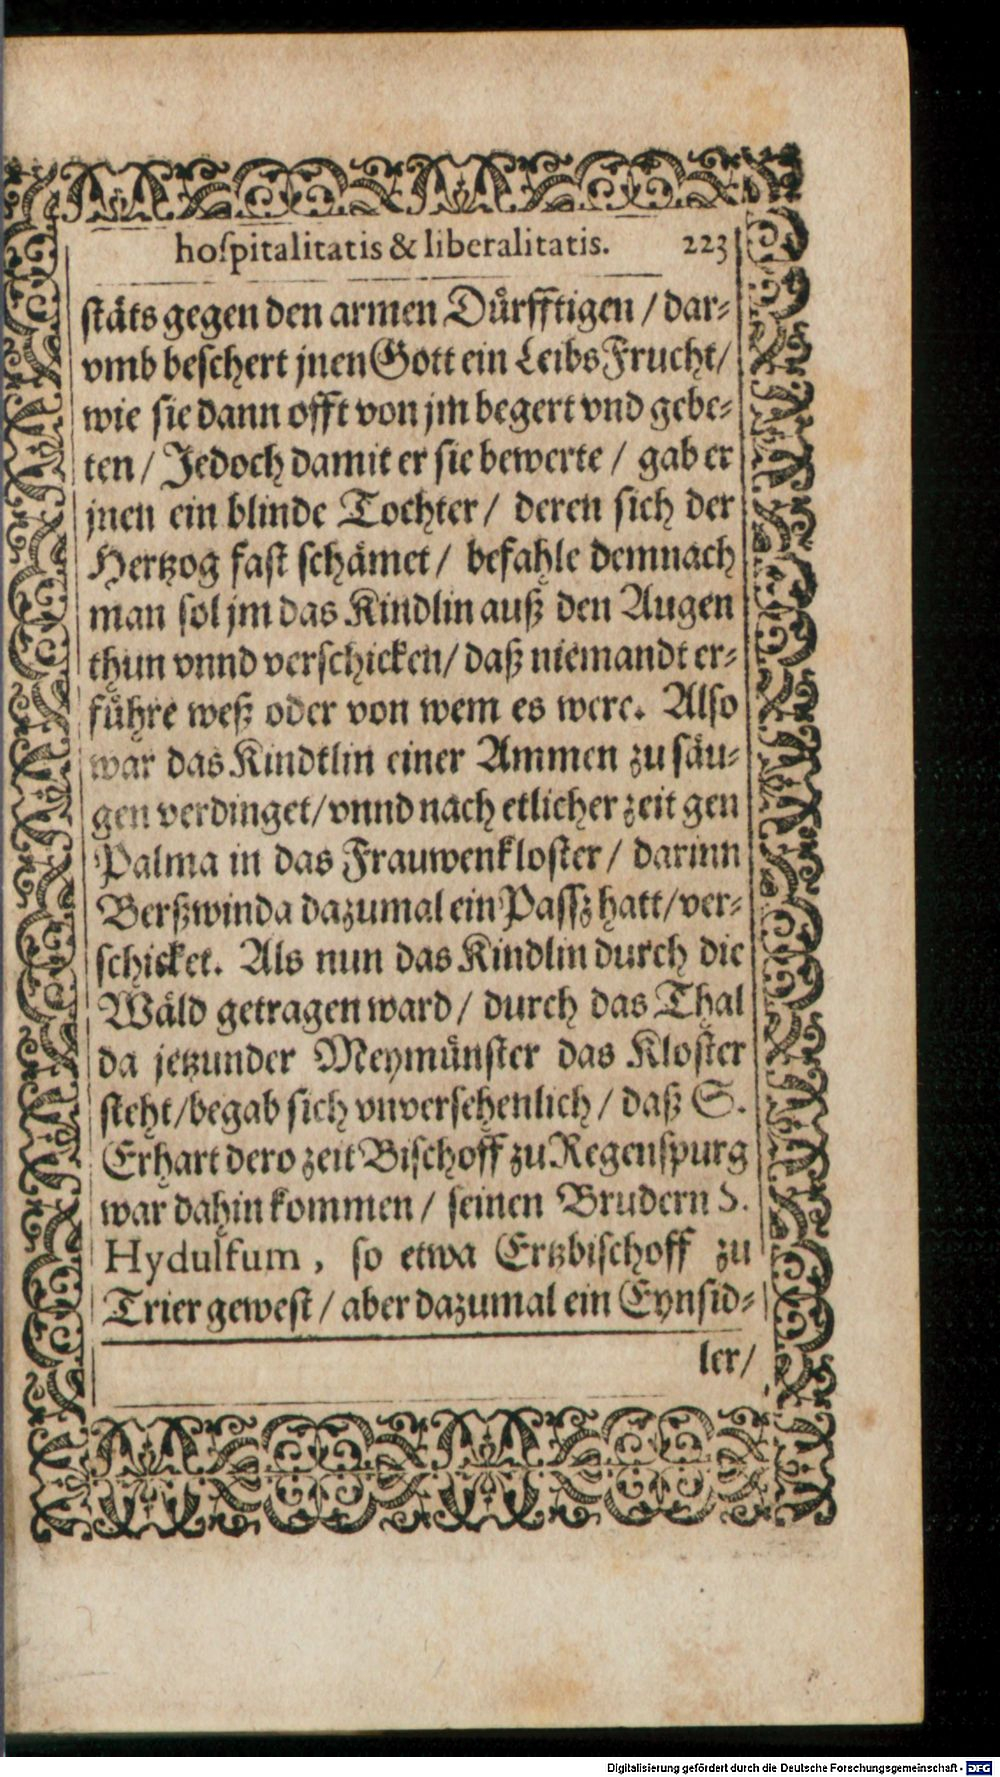 hoſpitalitatis & liberalitatis. 223
ſtäts gegen den armen Důrfftigen / dar⸗
vmb beſchert jnen Gott ein Leibs Frucht /
wie ſie dann offt von jm begert vnd gebe⸗
ten / Jedoch damit er ſie bewerte / gab er
jnen ein blinde Tochter / deren ſich der
Hertzog faſt ſchämet / befahle demnach
man ſol jm das Kindlin auß den Augen
thun vnnd verſchicken / daß niemandt er⸗
führe weß oder von wem es were. Alſo
war das Kindtlin einer Ammen zu ſäu⸗
gen verdinget / vnnd nach etlicher zeit gen
Palma in das Frauwenkloſter / darinn
Berßwinda dazumal ein Paſſz hatt / ver⸗
ſchicket. Als nun das Kindlin durch die
Wäld getragen ward / durch das Thal
da jetzunder Meymünſter das Kloſter
ſteht / begab ſich vnverſehenlich / daß S.
Erhart dero zeit Biſchoff zu Regenſpurg
war dahin kommen / ſeinen Brudern S.
Hydulfum, ſo etwa Ertzbiſchoff zu
Trier geweſt / aber dazumal ein Eynſid⸗
ler /
Digitalisierung gefördert durch die Deutsche Forschungsgemeinschaft - DFG